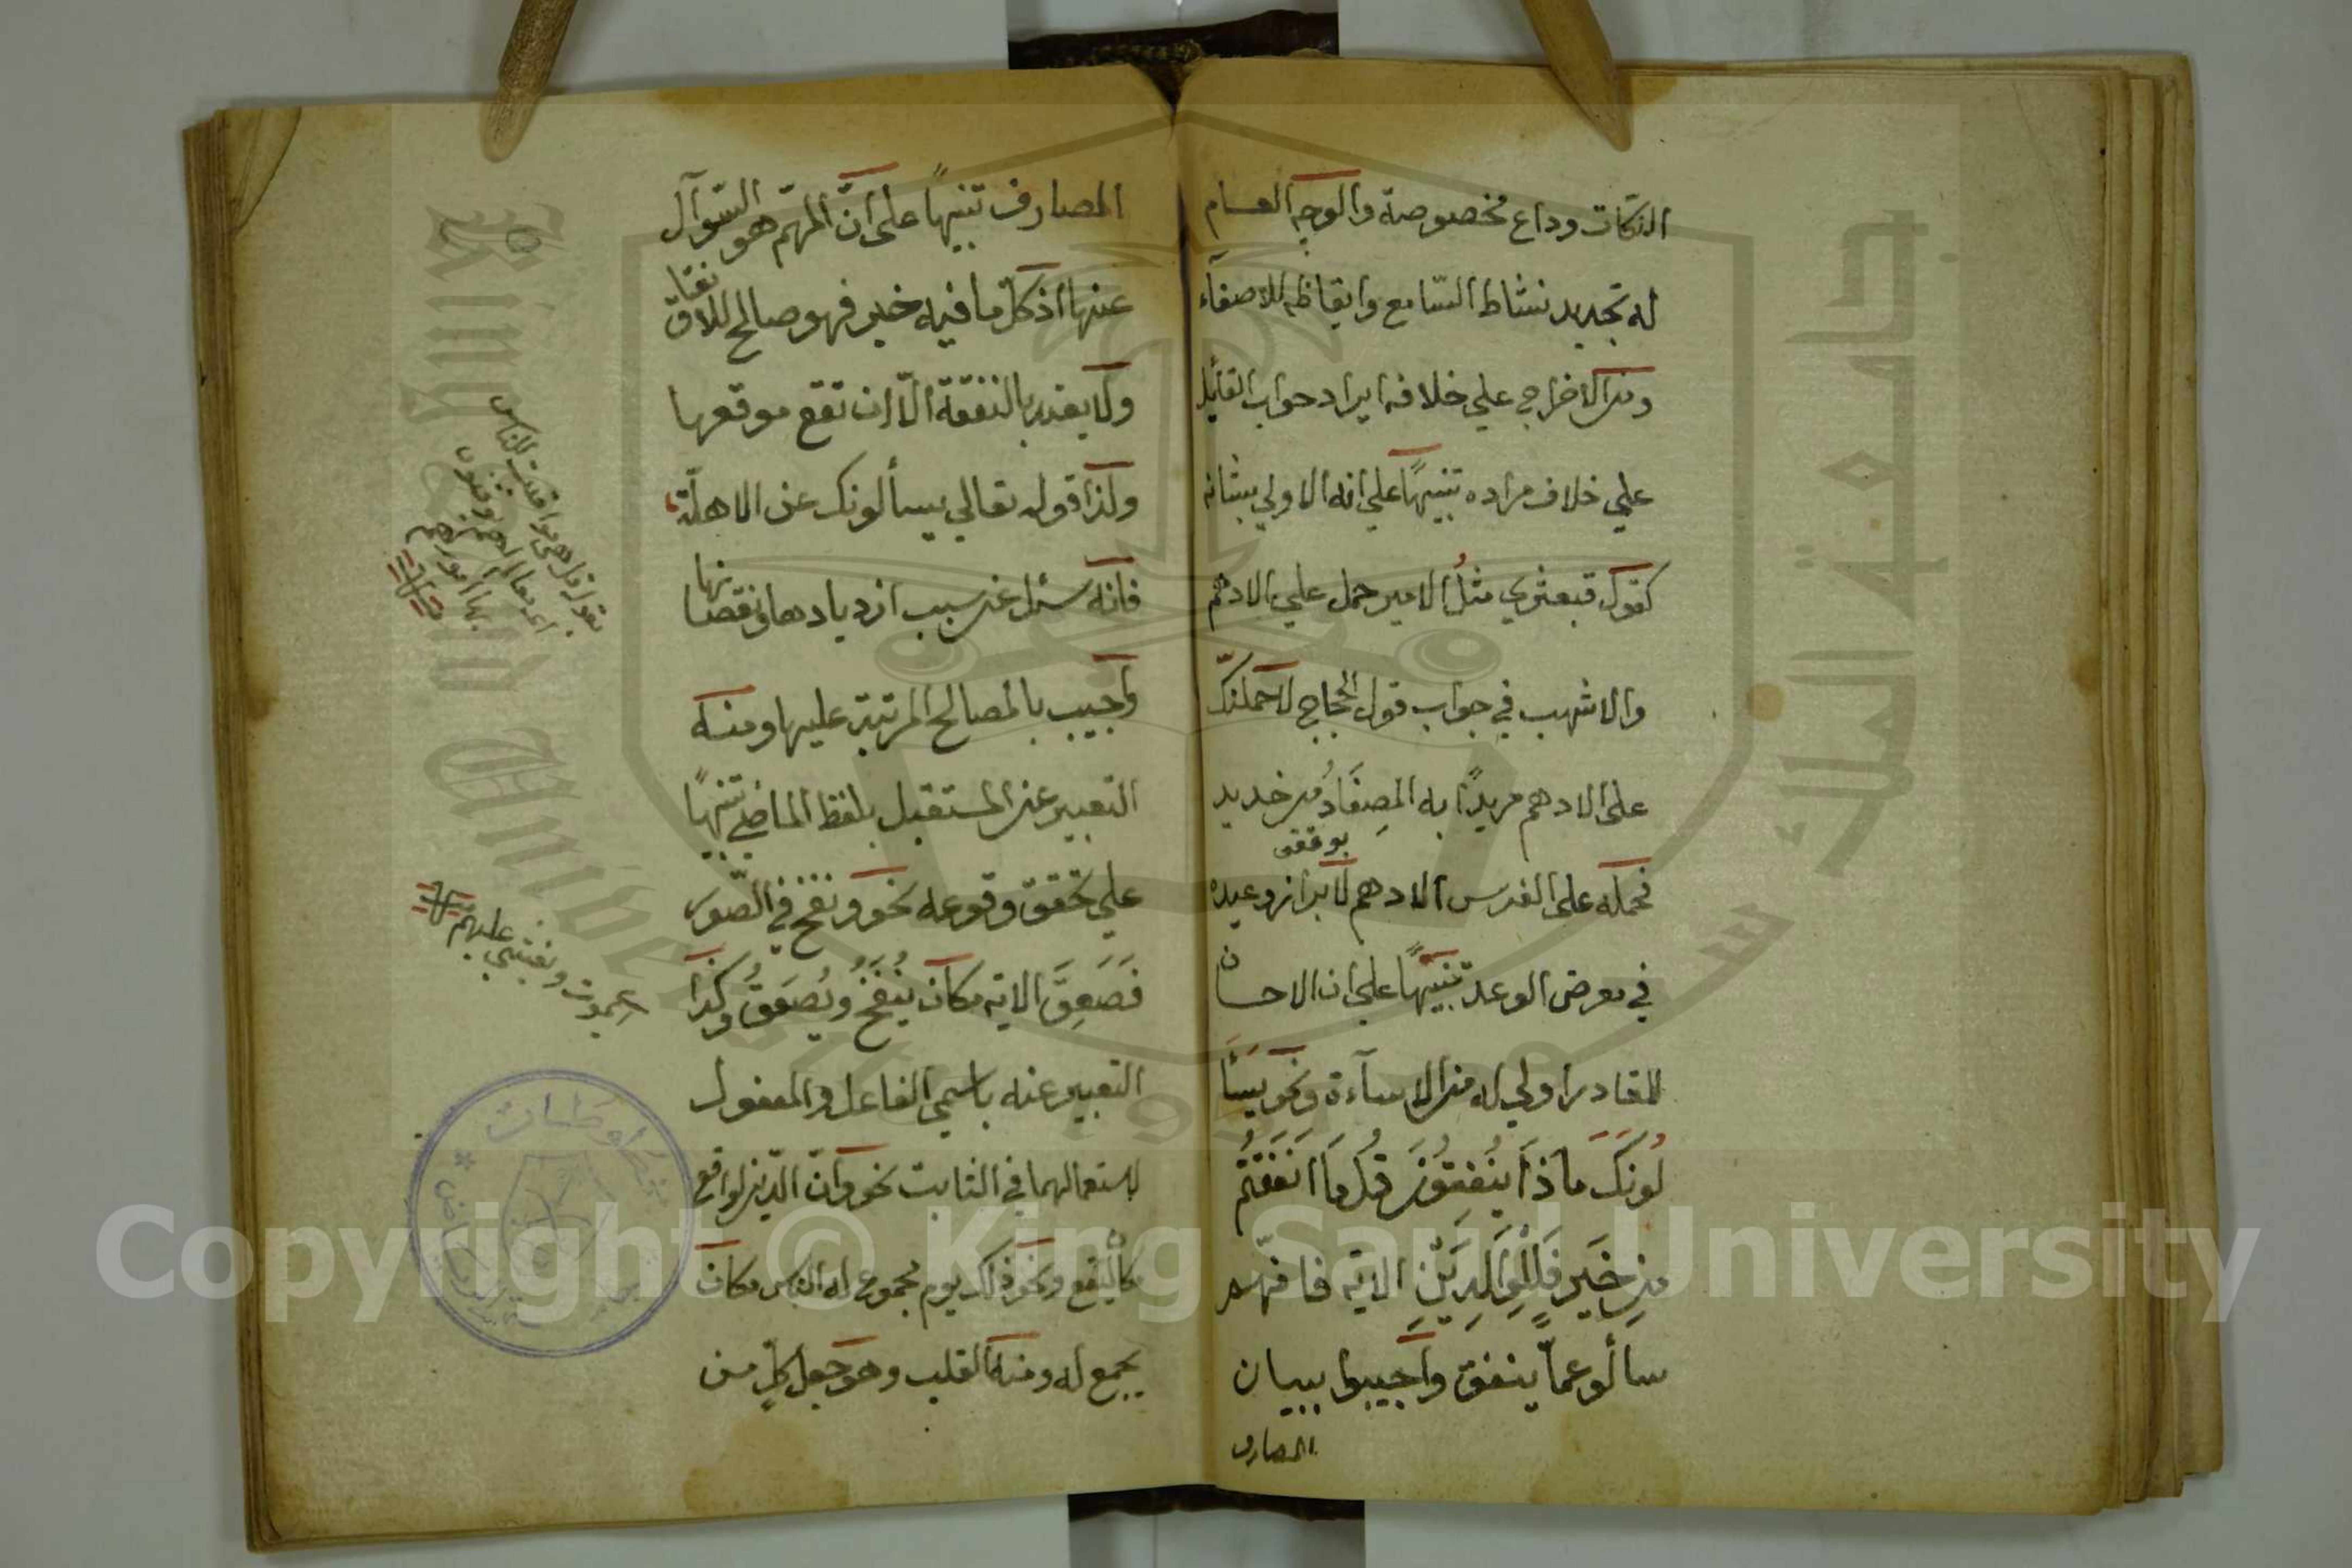 النكات وداع مخصوصة والوجه العام
له تجديد نشاط السّامع وايقاظه للاصغآء
ومن الاخراج علي خلافه ايراد جواب القائل
علي خلاف مراده تنبيهًا علي انه الاولي بشانه
كقول قبعثري مثلُ الامير حمل علي الادهم
والاشهب في جواب قول الحجاج لاحملنّك
على الادهم مريدًا به المِصفَادُ من حديد
فحمله على الفرس الادهم لابراز وعيده
في معرض الوعد تنبيهًا علي ان الاحسان
للقادر اولي له من الاسآءة ونحو يَسَأَ
لُونَكَ مَاذَا يُنفِقُونَ قُل مَا اَنفَقتُم
مِن خَيرٍ فَلِلوَالِدَينِ الاية فانّهم
سالو عمّا ينفق واجيبوا ببيان
المصارف
المصارف تنبيهًا على انّ المهمّ هو السّوآل
عنها اذ كلّ ما فيه خير فهو صالح للانفاق
ولا يعتد بالنفقة الّا ان تقع موقعها
ولذا قوله تعالي يسألونك عن الاهلّة
فانّه سئل عن سبب ازديادها ونقصانها
واجيب بالمصالح المرتبة عليها ومنه
التعبير عن المستقبل بلفظ الماضي تنبيهًا
علي تحقق وقوعه نحو ونفخ في الصّور
فَصَعِقَ الاية مكان يُنفَخُ ويُصعَقُ وكذا
التعبير عنه باسمي الفاعل والمفعول
لاستعمالهما في الثابت نحو وانّ الدّين لواقع
مكان ليقع ونحو ذلك يوم مجموع له الناس مكان
يجمع له ومنه القلب وهو جعل كلٍّ من
بقول قل هي مواقيت للناس
يموت ويغشي عليهم
Copyright © King Saud University
King Saud University
جامعة الملك سعود
1957